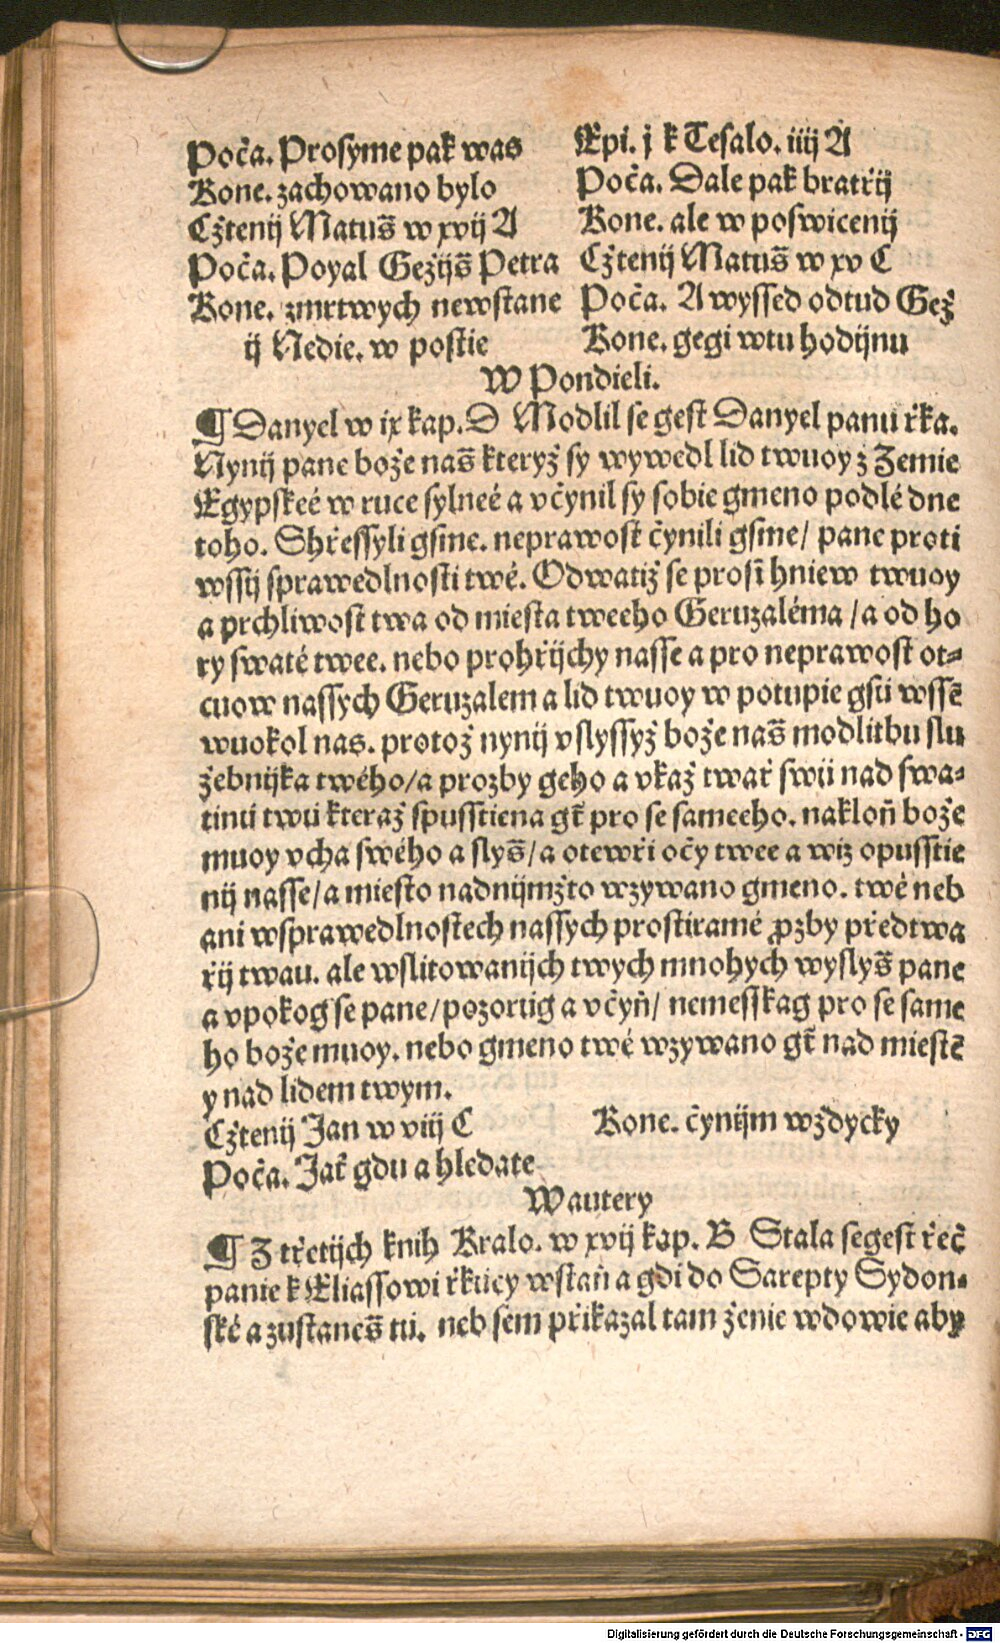 Poča. Prosyme pak was
Kone. zachowano bylo
Cžtenij Matus̃ w xvij A
Poča. Poyal Gežijs̃ Petra
Kone. zmrtwych newstane
ij Nedie. w postie
Epi. j k Tesalo. iiij A
Poča. Dale pak bratřij
Kone. ale w poswicenij
Cžtenij Matus̃ w xv C
Poča. A wyssed odtud Gež
Kone. gegi wtu hodijnu
W Pondieli.
¶ Danyel w ix kap. D Modlil se gest Danyel panu řka.
Nynij pane bože nas̃ kteryž sy wywedl lid twuoy z Zemie
Egypskeé w ruce sylneé a včynil sy sobie gmeno podlé dne
toho. Shřessyli gsme. neprawost čynili gsme/ pane proti
wssij sprawedlnosti twé. Odwatiž se prosı̃ hniew twuoy
a prchliwost twa od miesta tweeho Geruzaléma /a od ho
ry swaté twee. nebo prohřijchy nasse a pro neprawost ot⸗
cuow nassych Geruzalem a lid twuoy w potupie gsú wssẽ
wuokol nas. protož nynij vslyssyž bože nas̃ modlitbu slu
žebnijka twého/a prozby geho a vkaž twař swú nad swa⸗
tinú twú kteraž spusstiena gt̃ pro se sameeho. nakloň bože
muoy vcha swého a slys̃/a otewři očy twee a wiz opusstie
nij nasse/a miesto nadnijmžto wzywano gmeno. twé neb
ani wsprawedlnostech nassych prostiramé ꝓzby předtwa
řij twau. ale wslitowanijch twych mnohych wyslys̃ pane
a vpokog se pane/pozorúg a včyň/ nemesskag pro se same
ho bože muoy. nebo gmeno twé wzywano gt̃ nad miestẽ
y nad lidem twym.
Cžtenij Jan w viij C
Poča. Jať gdu a hledate
Kone. čynijm wždycky
Wautery
¶ Z třetijch knih Kralo. w xvij kap. B Stala segest řeč
panie k Eliassowi řkúcy wstaň a gdi do Sarepty Sydon⸗
ské a zustanes̃ tú. neb sem přikazal tam ženie wdowie aby
Digitalisierung gefördert durch die Deutsche Forschungsgemeinschaft - DFG